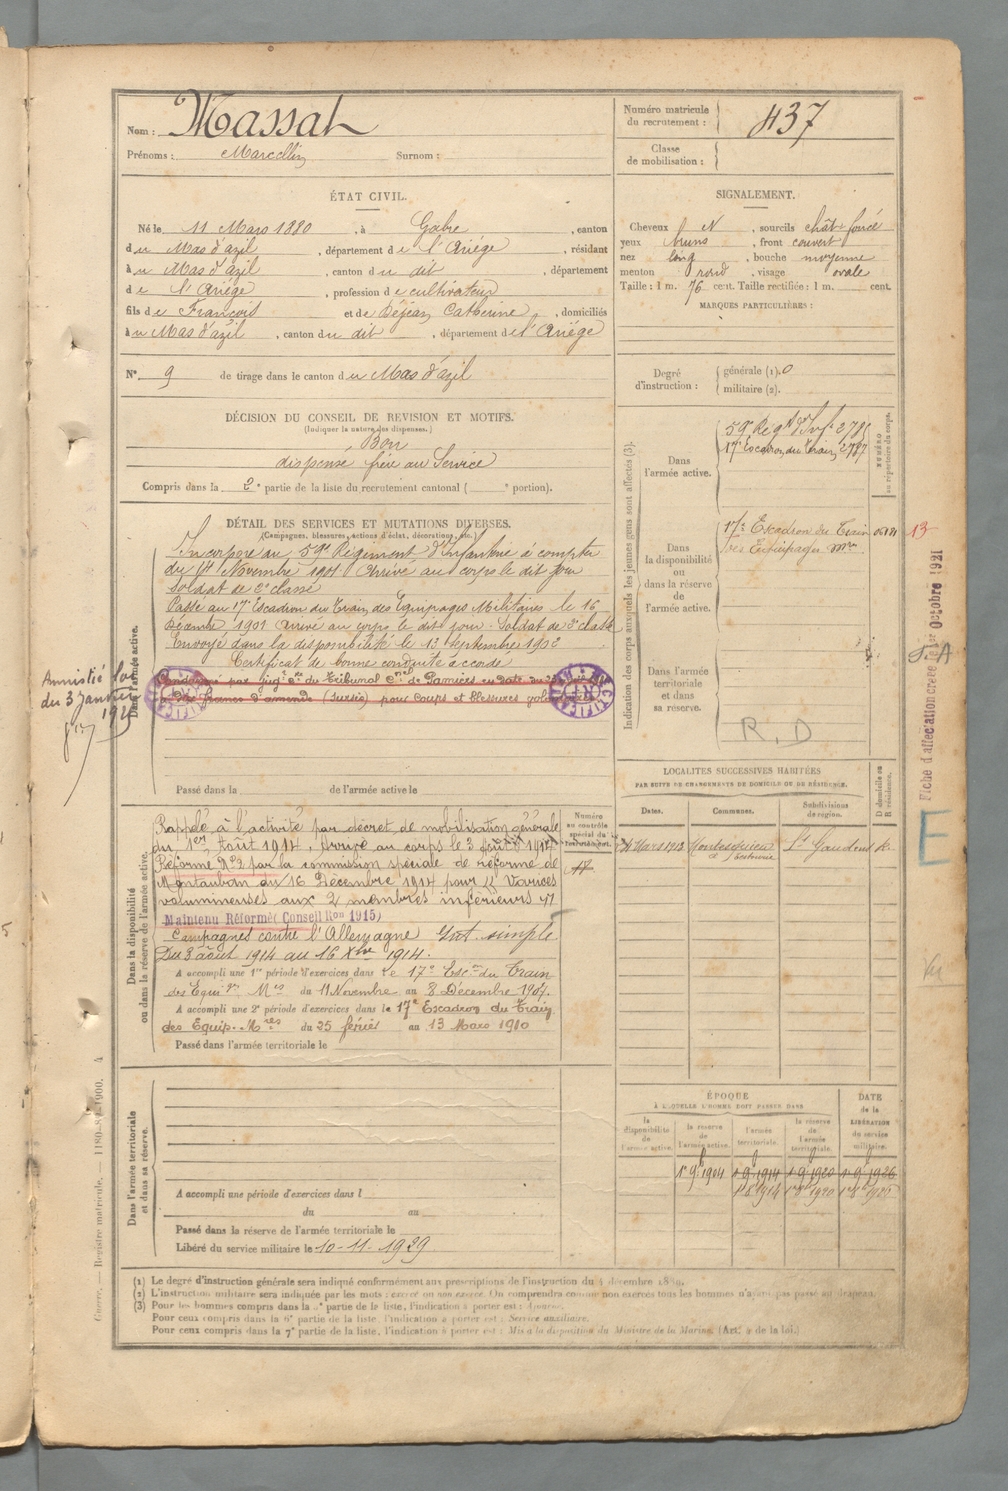 Nom : Massat
Prénoms : Marcellin Surnom :
Numéro matricule
du recrutement : 437
Classe
de mobilisation :
ÉTAT CIVIL.
Né le 11 Mars 1880, à Gabre, canton
du Mas d'azil, département de l'Ariège, résidant
au Mas d'azil, canton du dit, département
de l'Ariège, profession de cultivateur
fils de François et de Dejean Catherine, domiciliés
au Mas d'azil, canton du dit, département de l'Ariège
N° 9 de tirage dans le canton du Mas d'azil
SIGNALEMENT.
Cheveux N, sourcils chât foncé
yeux bruns, front couvert
nez long, bouche moyenne
menton rond, visage ovale
Taille : 1 m. 76 cent. Taille rectifiée : 1 m. cent.
MARQUES PARTICULIÈRES :
Degré
d'instruction :
générale (1). 0
militaire (2).
DÉCISION DU CONSEIL DE REVISION ET MOTIFS.
(Indiquer la nature des dispenses.)
Bon
dispensé frère au Service
Compris dans la 2e partie de la liste du recrutement cantonal ( portion).
DÉTAIL DES SERVICES ET MUTATIONS DIVERSES.
(Campagnes, blessures, actions d'éclat, décorations, etc.)
Dans l'armée active.
Incorporé au 59e Régiment d'Infanterie à compter
du 14 Novembre 1901. Arrivé au corps le dit jour
soldat de 2e classe
Passé au 17e Escadron du Train des Equipages Militaires le 16
Décembre 1901 arrivé au corps le dit jour. Soldat de 2e classe
Envoyé dans la disponibilité le 13 Septembre 1902
Certificat de bonne conduite accordé
Condamné par jugt du Tribunal Cnel de Pamiers en date du
francs d'amende (Sursis) pour Coups et blessures
Amnistié loi
du 3 Janvier
1925
Passé dans la de l'armée active le
Dans la disponibilité
ou dans la réserve de l'armée active.
Numéro
au contrôle
spécial du
recrutement.
Rappelé à l'activité par décret de mobilisation générale
du 1er Août 1914, arrivé au corps le 3 août 1914
Réformé N°2 par la commission spéciale de réforme de
Montauban du 16 Décembre 1914 pour " Varices
volumineuses aux 2 membres inférieurs "
Maintenu Réformé (Conseil Ron 1915)
Campagnes contre l'Allemagne Unt. simple
Du 3 août 1914 au 16 Xbre 1914.
A accompli une 1re période d'exercices dans le 17e Escon du Train
des Equiges Mres du 11 Novembre au 8 Décembre 1907.
A accompli une 2e période d'exercices dans le 17e Escadron du Train
des Equip. Mres du 25 février au 13 Mars 1910
Passé dans l'armée territoriale le
Dans l'armée territoriale
et dans sa réserve.
A accompli une période d'exercices dans l
du au
Passé dans la réserve de l'armée territoriale le
Libéré du service militaire le 10-11-1929
Indication des corps auxquels les jeunes gens sont affectés (3).
NUMÉRO
au répertoire du corps.
Dans
l'armée active.
59e Régt d'Inf. 2785
17e Escadron du Train 2787
Dans
la disponibilité
ou
dans la réserve
de
l'armée active.
17e Escadron du Train
des Equipages Mres
13
Dans l'armée
territoriale
et dans
sa réserve.
R. D
Fiche d'affectation créée le 1er Octobre 1921
S.A
E
Vu
LOCALITÉS SUCCESSIVES HABITÉES
PAR SUITE DE CHANGEMENTS DE DOMICILE OU DE RÉSIDENCE.
Dates. Communes. Subdivisions de région. D domicile ou R résidence.
Mars 1913 Montesquieu Volvestre St Gaudens R.
ÉPOQUE
À LAQUELLE L'HOMME DOIT PASSER DANS
DATE
de la
LIBÉRATION
du service
militaire.
la disponibilité de l'armée active.
la réserve de l'armée active.
l'armée territoriale.
la réserve de l'armée territoriale.
1er 9bre 1904 1er 9 1914 1er 9 1920 1er 9 1926
1er 8b 1914 1er 8b 1920 1er 8b 1926
(1) Le degré d'instruction générale sera indiqué conformément aux prescriptions de l'instruction du 4 décembre 1889.
(2) L'instruction militaire sera indiquée par les mots : exercé ou non exercé. On comprendra comme non exercés tous les hommes n'ayant pas passé au drapeau.
(3) Pour les hommes compris dans la 4e partie de la liste, l'indication à porter est : Ajourné.
Pour ceux compris dans la 6e partie de la liste, l'indication à porter est : Service auxiliaire.
Pour ceux compris dans la 7e partie de la liste, l'indication à porter est : Mis à la disposition du Ministre de la Marine. (Art. 4 de la loi.)
Guerre. — Registre matricule. — 1180-89-1900. 4